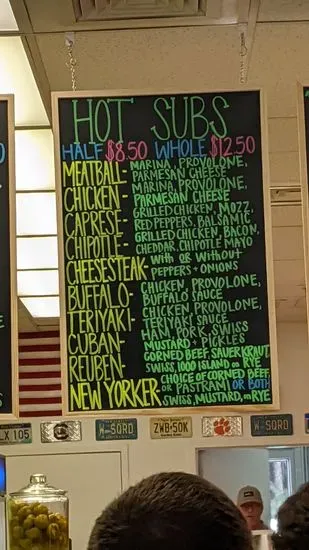 HOT SUBS
HALF $8.50 WHOLE $12.50
MEATBALL- MARINA, PROVOLONE,
PARMESAN CHEESE
CHICKEN- MARINA, PROVOLONE,
PARMESAN CHEESE
CAPRESE- GRILLED CHICKEN, MOZZ,
RED PEPPERS, BALSAMIC
CHIPOTLE- GRILLED CHICKEN, BACON,
CHEDDAR, CHIPOTLE MAYO
CHEESESTEAK- with or without
PEPPERS + ONIONS
BUFFALO- CHICKEN, PROVOLONE,
BUFFALO SAUCE
TERIYAKI- CHICKEN, PROVOLONE,
TERIYAKI SAUCE
CUBAN- HAM, PORK, SWISS
MUSTARD + PICKLES
REUBEN- CORNED BEEF, SAUERKRAUT,
SWISS, 1000 ISLAND on RYE
NEW YORKER- CHOICE OF CORNED BEEF
or PASTRAMI or BOTH
SWISS, MUSTARD, on RYE
LX 105
W-SQRD
ZWB-50K
W-SQRD